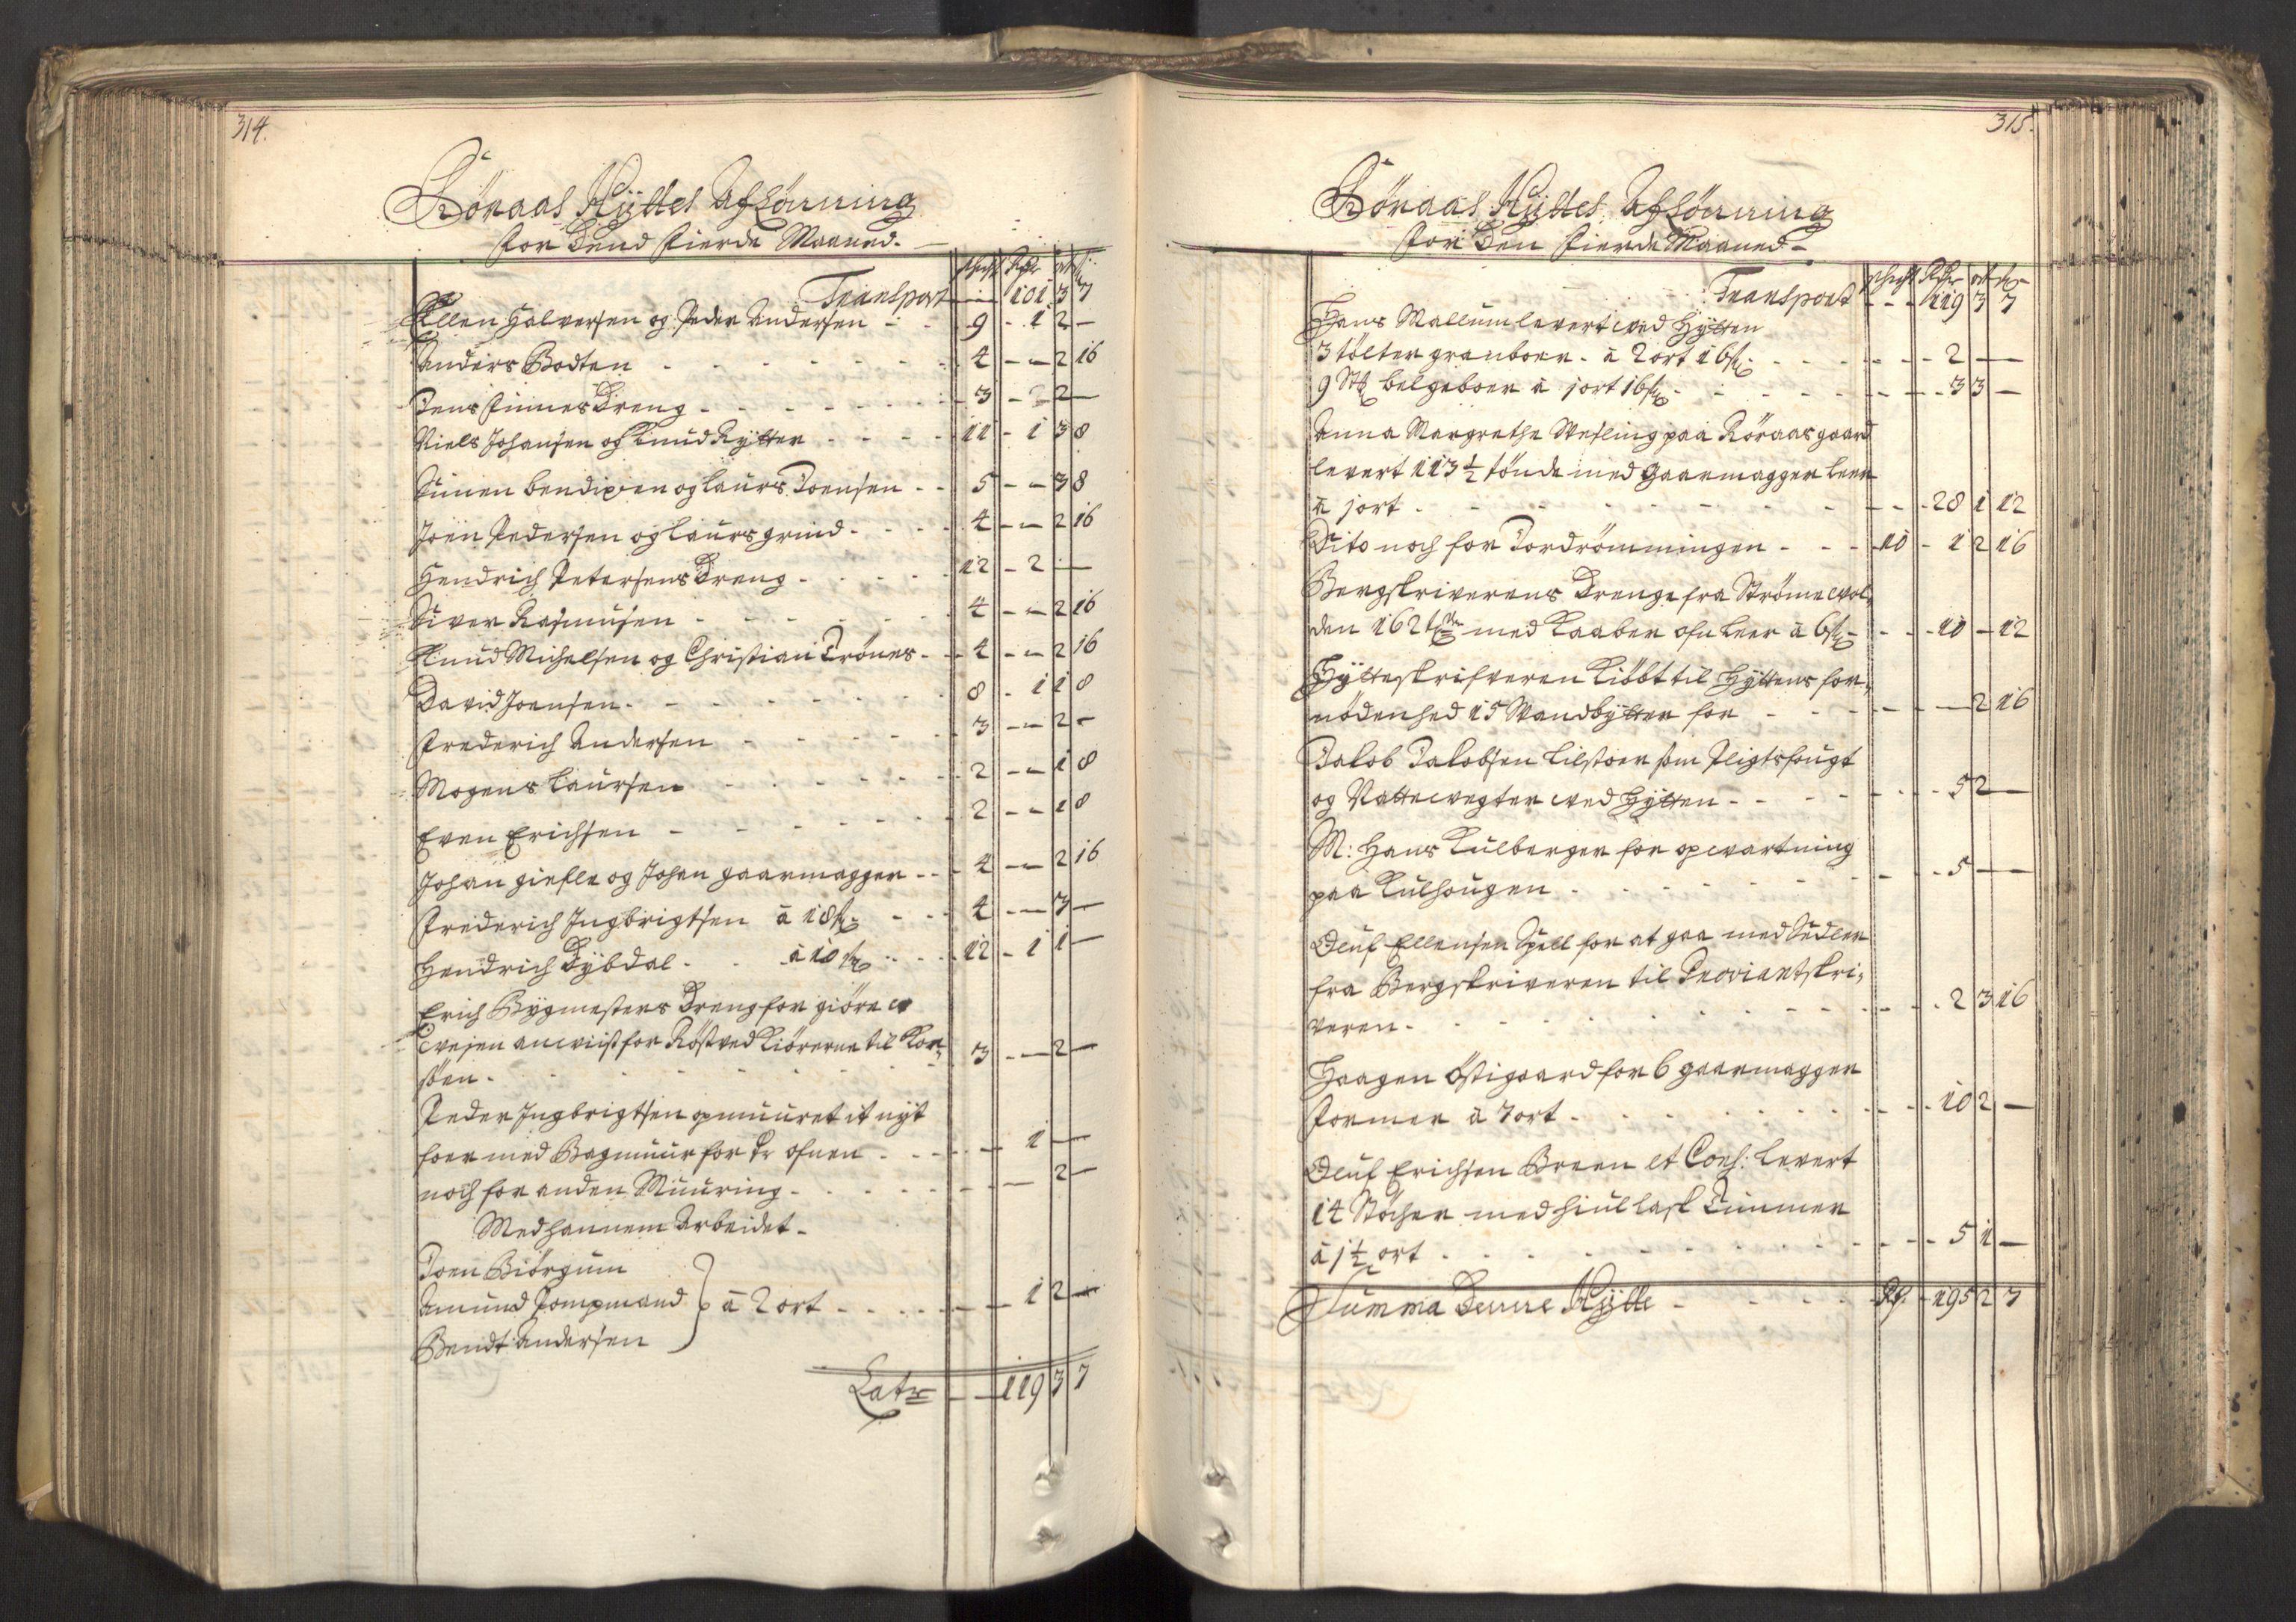 314.
Röraas Hyttes Aflönning
for Dend Fierde Maaned.
schicht Rdr ort s
Transport - - 101 3 7
Ellen Halversen og Peder Andersen - 9 - 1 2 -
Anders Bodten - 4 - - 2 16
Jens Finnes Dreng - 3 - - 2 -
Niels Johansen og Knud Rytter - 11 - 1 3 8
Simen Bendixen og Laurs Joensen - 5 - - 3 8
Joen Pedersen og Laurs grind - 4 - - 2 16
Hendrich Petersens Dreng - 12 - 2 -
Siver Rasmusen - 4 - - 2 16
Knud Michelsen og Christian Trönes - 4 - - 2 16
David Joensen - 8 - 1 1 8
Frederich Andersen - 3 - - 2 -
Mogens Laursen - 2 - - 1 8
Even Erichsen - 2 - - 1 8
Johan giefle og Johan gaarmagger - 4 - - 2 16
Frederich Ingbrigtsen à 18 s - 4 - - 3 -
Hendrich Dybdal à 10 s - 12 - 1 1 -
Erich Bygmesters Dreng for giöre
Vejen anviist for Röstved Kiörerne til Kor-
söen - 3 - - 2 -
Peder Ingbrigtsen opmuuret it nyt
foer med Bagmuur for Pr ofnen - - 1 -
noch for anden Muuring - - - 2 -
Med hannem Arbeidet
Joen Biörgum
Amund Pompmand } à 2 ort - - 1 2 -
Bendt Andersen
Latr - - 119 3 7
315.
Röraas Hyttes Aflönning
for Den Fierde Maaned
schicht Rdr ort s
Transport - - 119 3 7
Hans Mallum levert ved Hytten
3 tölter granboer à 2 ort 16 s - - 2 -
9 Stk belgeboer à 1 ort 16 s - - 3 3 -
Anna Margrethe Wesling paa Röraas gaard
levert 113 1/2 tönde med Gaarmagger leer
à 1 ort - - 28 1 12
Dito noch for Jordrömmingen - 10 - 1 2 16
Bergskriverens Drenge fra Strömevol-
den 162 tdr med Kaaber ofn leer à 6 s - - 10 - 12
Hytteskrifveren Kiöbt til Hyttens for-
nödenhed 15 Wandbytter for - - - 2 16
Jakob Jakobsen Lilstoer som Pligtsfougt
og Nattevegter ved Hytten - - 5 2 -
M: Hans Kulberger for opvartning
paa Kulhougen - - 5 -
Oluf Ellensen Spell for at gaa med Sedler
fra Bergskriveren til Proviantskri-
veren - - 2 3 16
Haagen Östigaard for 6 gaarmagger
Former à 7 ort - - 10 2 -
Oluf Erichsen Breen et Cons: levert
14 Stöcher med hiullast Timmer
à 1 1/2 ort - - 5 1 -
Summa Denne Hytte - Rd - 195 2 7